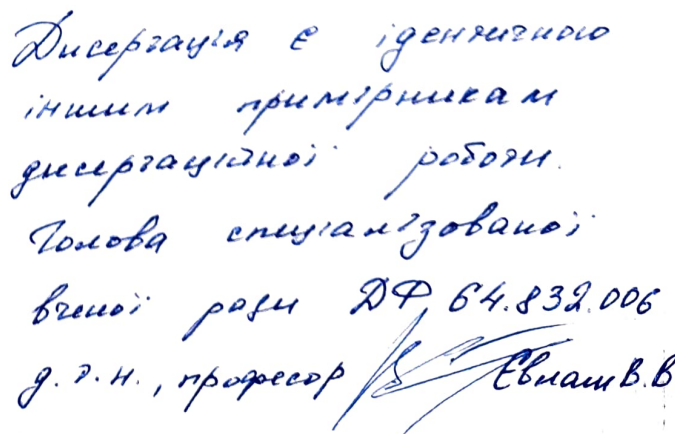 Дисертація є ідентичною
іншим примірникам
дисертаційної роботи.
Голова спеціалізованої
вченої ради ДФ 64.832.006
д.т.н., професор Євлаш В.В